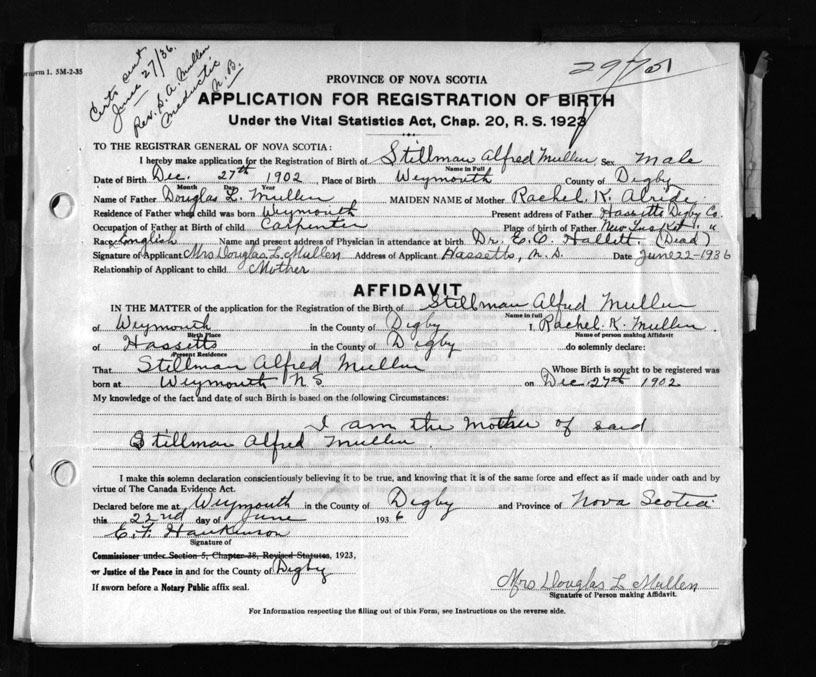 Form 1. 5M-2-35
Certs sent
June 27/36.
Rev. S. A. Mullen
Meductic
N. B.
PROVINCE OF NOVA SCOTIA
APPLICATION FOR REGISTRATION OF BIRTH
Under the Vital Statistics Act, Chap. 20, R. S. 1923
TO THE REGISTRAR GENERAL OF NOVA SCOTIA:
I hereby make application for the Registration of Birth of Stillman Alfred Mullen, Sex Male
Name in Full
Date of Birth Dec. 27th 1902, Place of Birth Weymouth County of Digby
Month Day Year
Name of Father Douglas L. Mullen MAIDEN NAME of Mother Rachel K.
Residence of Father when child was born Weymouth Present address of Father Hassetts Digby Co.
Occupation of Father at Birth of child Carpenter Place of birth of Father New Tusket " "
Race English Name and present address of Physician in attendance at birth Dr. E. C. Hallett. (Dead)
Signature of Applicant Mrs Douglas L. Mullen Address of Applicant Hassetts, N. S. Date June 22-1936
Relationship of Applicant to child Mother
AFFIDAVIT
IN THE MATTER of the application for the Registration of the Birth of Stillman Alfred Mullen
Name in full
of Weymouth in the County of Digby I, Rachel. K. Mullen.
Birth Place Name of person making Affidavit
of Hassetts in the County of Digby do solemnly declare:
Present Residence
That Stillman Alfred Mullen Whose Birth is sought to be registered was
born at Weymouth N S. on Dec. 27th 1902
My knowledge of the fact and date of such Birth is based on the following Circumstances:
I am the Mother of said
Stillman Alfred Mullen
I make this solemn declaration conscientiously believing it to be true, and knowing that it is of the same force and effect as if made under oath and by
virtue of The Canada Evidence Act.
Declared before me at Weymouth in the County of Digby and Province of Nova Scotia
this 22nd day of June 1936
E. F. Hankinson
Signature of
Commissioner under Section 5, Chapter 38, Revised Statutes, 1923,
or Justice of the Peace in and for the County of Digby
If sworn before a Notary Public affix seal.
Mrs Douglas L Mullen
Signature of Person making Affidavit.
For Information respecting the filling out of this Form, see Instructions on the reverse side.